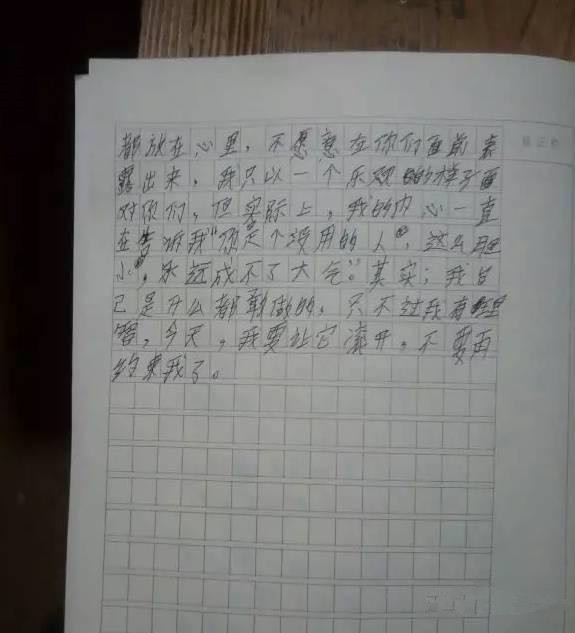 都放在心里，不愿意在你们面前表
露出来，我只以一个乐观的样子面
对你们，但实际上，我的内心一直
在告诉我“你是个没用的人”，这么胆
小，永远成不了大气。”其实；我自
己是什么都敢做的，只不过我有理
智，今天，我要让它滚开，不要再
约束我了。